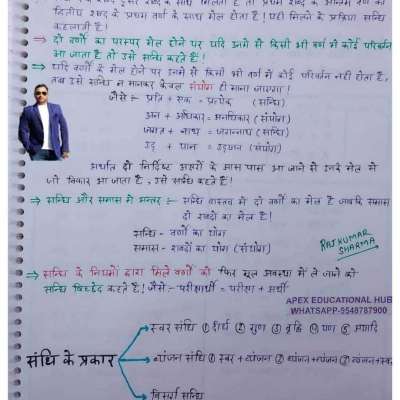 द्वितीय शब्द के प्रथम वर्ण के साथ मेल होता है! यही मिलने की प्रक्रिया सन्धि
कहलाती है!
⇒ दो वर्णों का परस्पर मेल होने पर यदि उनमें से किसी भी वर्ण में कोई परिवर्तन
आ जाता है तो उसे सन्धि कहते हैं!
⇒ यदि वर्णों के मेल होने पर उनमें से किसी भी वर्ण में कोई परिवर्तन नहीं होता है,
तब उसे सन्धि न मानकर केवल संयोग ही माना जाएगा!
जैसे :- प्रति + एक = प्रत्येक (सन्धि)
अन + अधिकार = अनधिकार (संयोग)
जगत + नाथ = जगन्नाथ (सन्धि)
उद् + पान = उद्पान (संयोग)
अर्थात दो निर्दिष्ट अक्षरों के आस पास आ जाने से उनके मेल से
जो विकार आ जाता है, उसे सन्धि कहते हैं!
⇒ सन्धि और समास में अन्तर :- सन्धि वास्तव में दो वर्णों का मेल है जबकि समास
दो शब्दों का मेल है!
सन्धि - वर्णों का योग
समास - शब्दों का योग (संयोग)
RAJKUMAR
SHARMA
⇒ सन्धि के नियमों द्वारा मिले वर्णों को फिर मूल अवस्था में ले जाने को
सन्धि विच्छेद कहते हैं! जैसे :- परीक्षार्थी = परीक्षा + अर्थी
APEX EDUCATIONAL HUB
WHATSAPP-5548787900
संधि के प्रकार
स्वर संधि ① दीर्घ ② गुण ③ वृद्धि ④ यण ⑤ अयादि
व्यंजन संधि ① स्वर + व्यंजन ② व्यंजन + व्यंजन ③ व्यंजन + स्वर
विसर्ग सन्धि